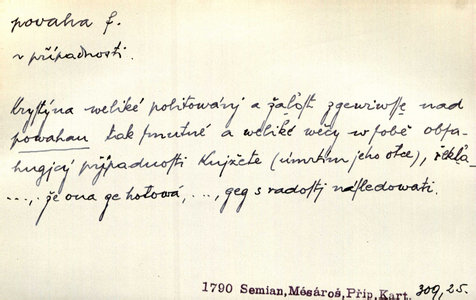 povaha f.
v případnosti.
Krystýna weliké politowánj a žalost zgewiwsse nad
powahau tak smutné a weliké wěcy w sobě obsa-
hugjcý přjpadnosti Knjžete (úmrtím jeho otce), řekla
..., že ona ge hotowá, ..., geg s radostj následowati.
1790 Semian, Mésároš, Příp. Kart. 309, 25.